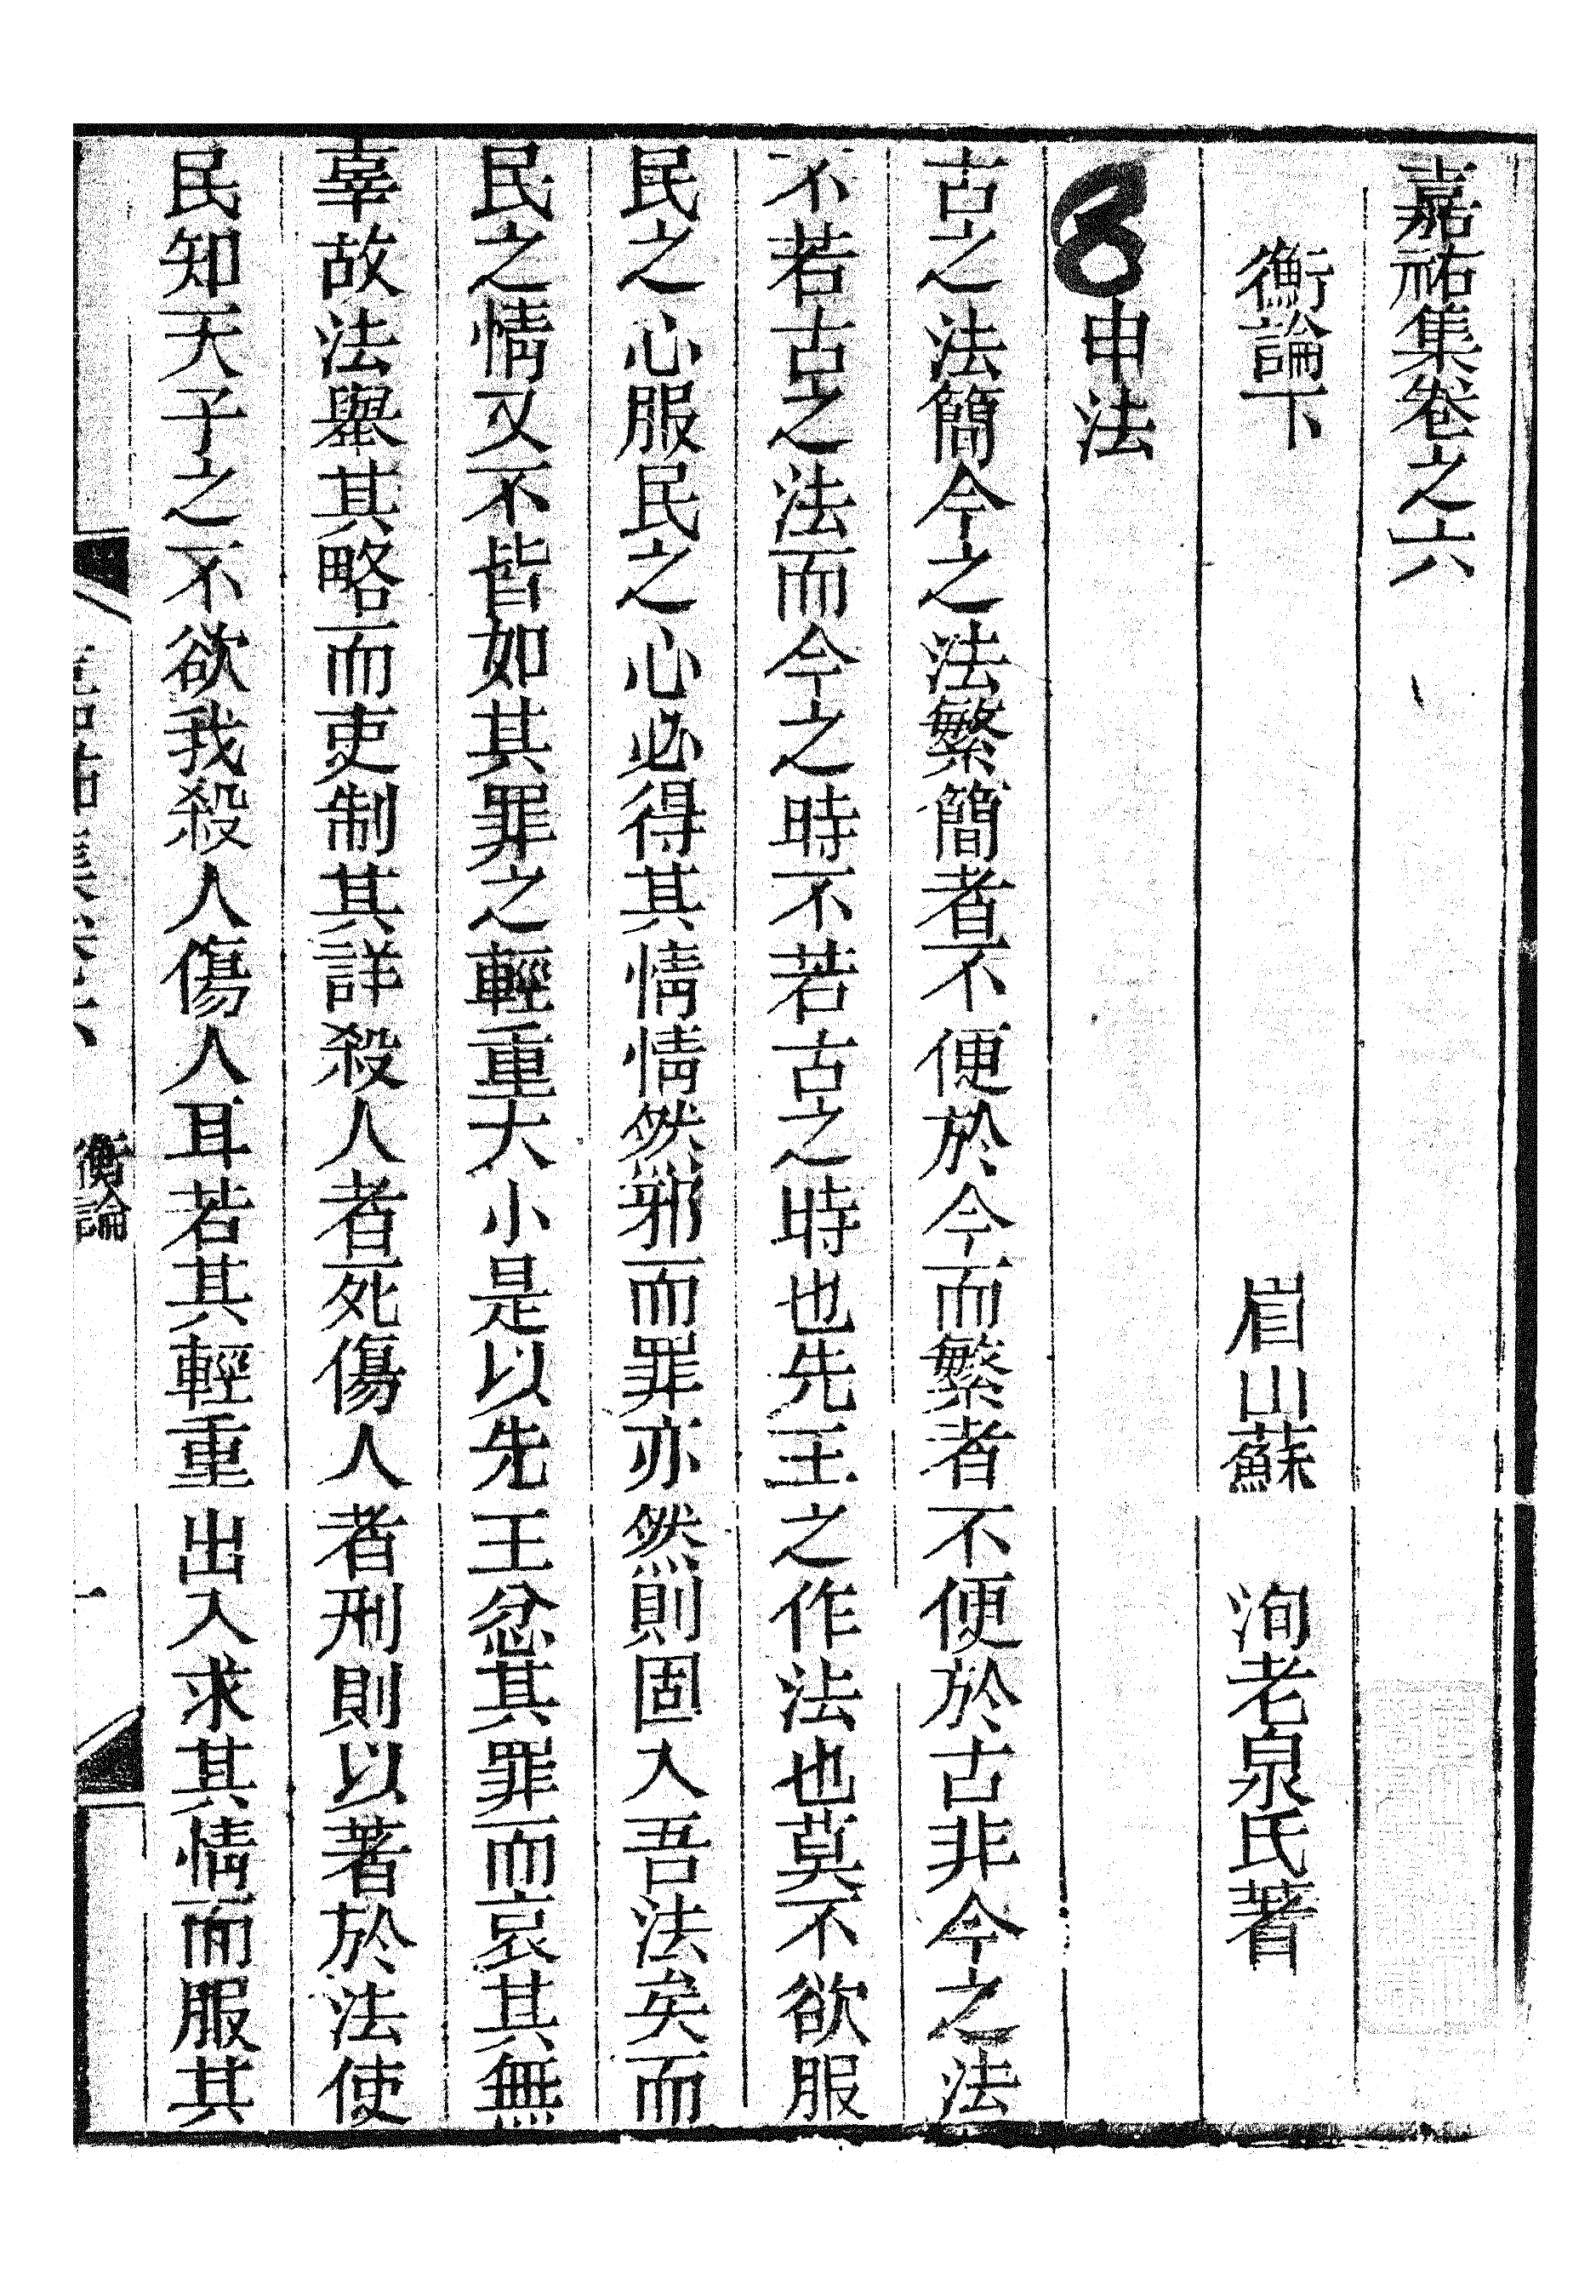 嘉祐集卷之六
衡論下 眉山蘇 洵老泉氏著
申法
古之法簡今之法繁簡者不便於今而繁者不便於古非今之法
不若古之法而今之時不若古之時也先王之作法也莫不欲服
民之心服民之心必得其情情然邪而罪亦然則固入吾法矣而
民之情又不皆如其罪之輕重大小是以先王忿其罪而哀其無
辜故法舉其略而吏制其詳殺人者死傷人者刑則以著於法使
民知天子之不欲我殺人傷人耳若其輕重出入求其情而服其
嘉祐集卷六 衡論 一